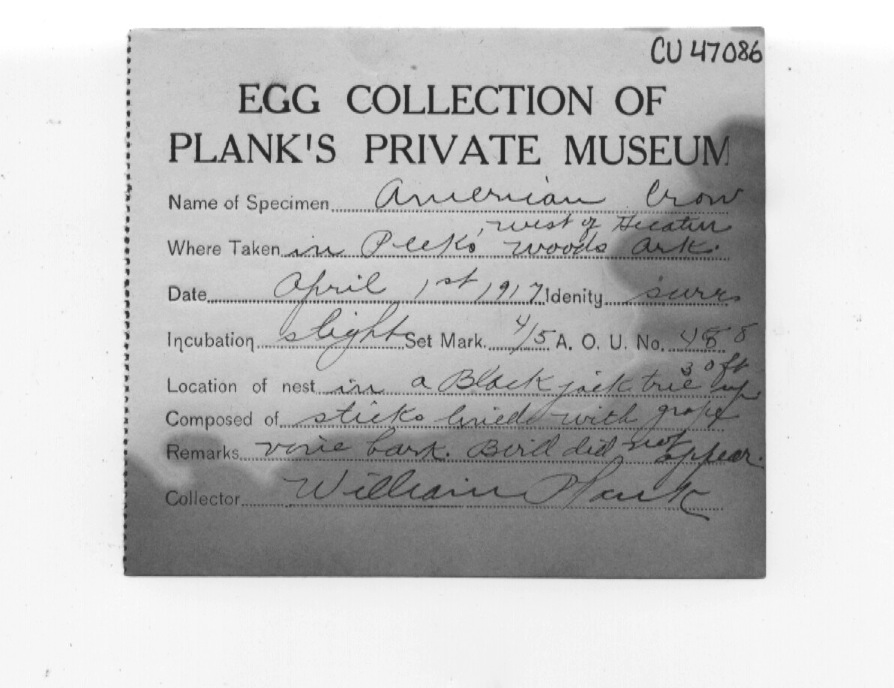 CU 47086
EGG COLLECTION OF
PLANK'S PRIVATE MUSEUM
Name of Specimen American Crow
west of Decatur
Where Taken in Peeks woods Ark.
Date April 1st 1917 Idenity sure
Incubation slight Set Mark. 4/5 A. O. U. No. 488
30 ft
Location of nest in a Black jack tree up
Composed of sticks lined with grape
Remarks vine bark. Bird did not appear.
Collector William Plank